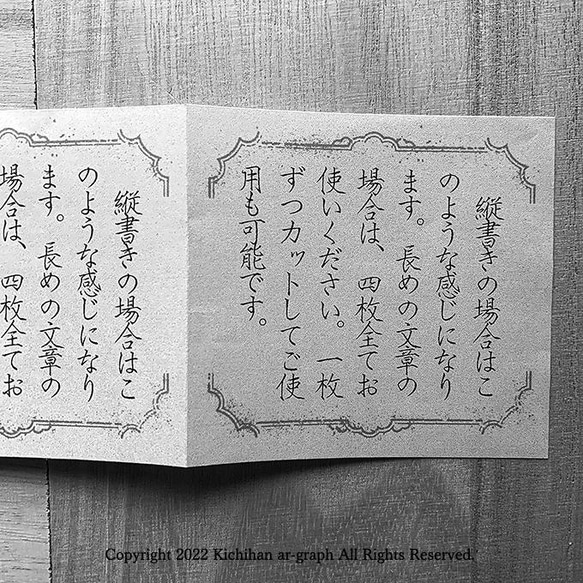 縦書きの場合はこ
のような感じになり
ます。長めの文章の
場合は、四枚全てお
使いください。一枚
ずつカットしてご使
用も可能です。
縦書きの場合はこ
のような感じになり
ます。長めの文章の
場合は、四枚全てお
Copyright 2022 Kichihan ar-graph All Rights Reserved.